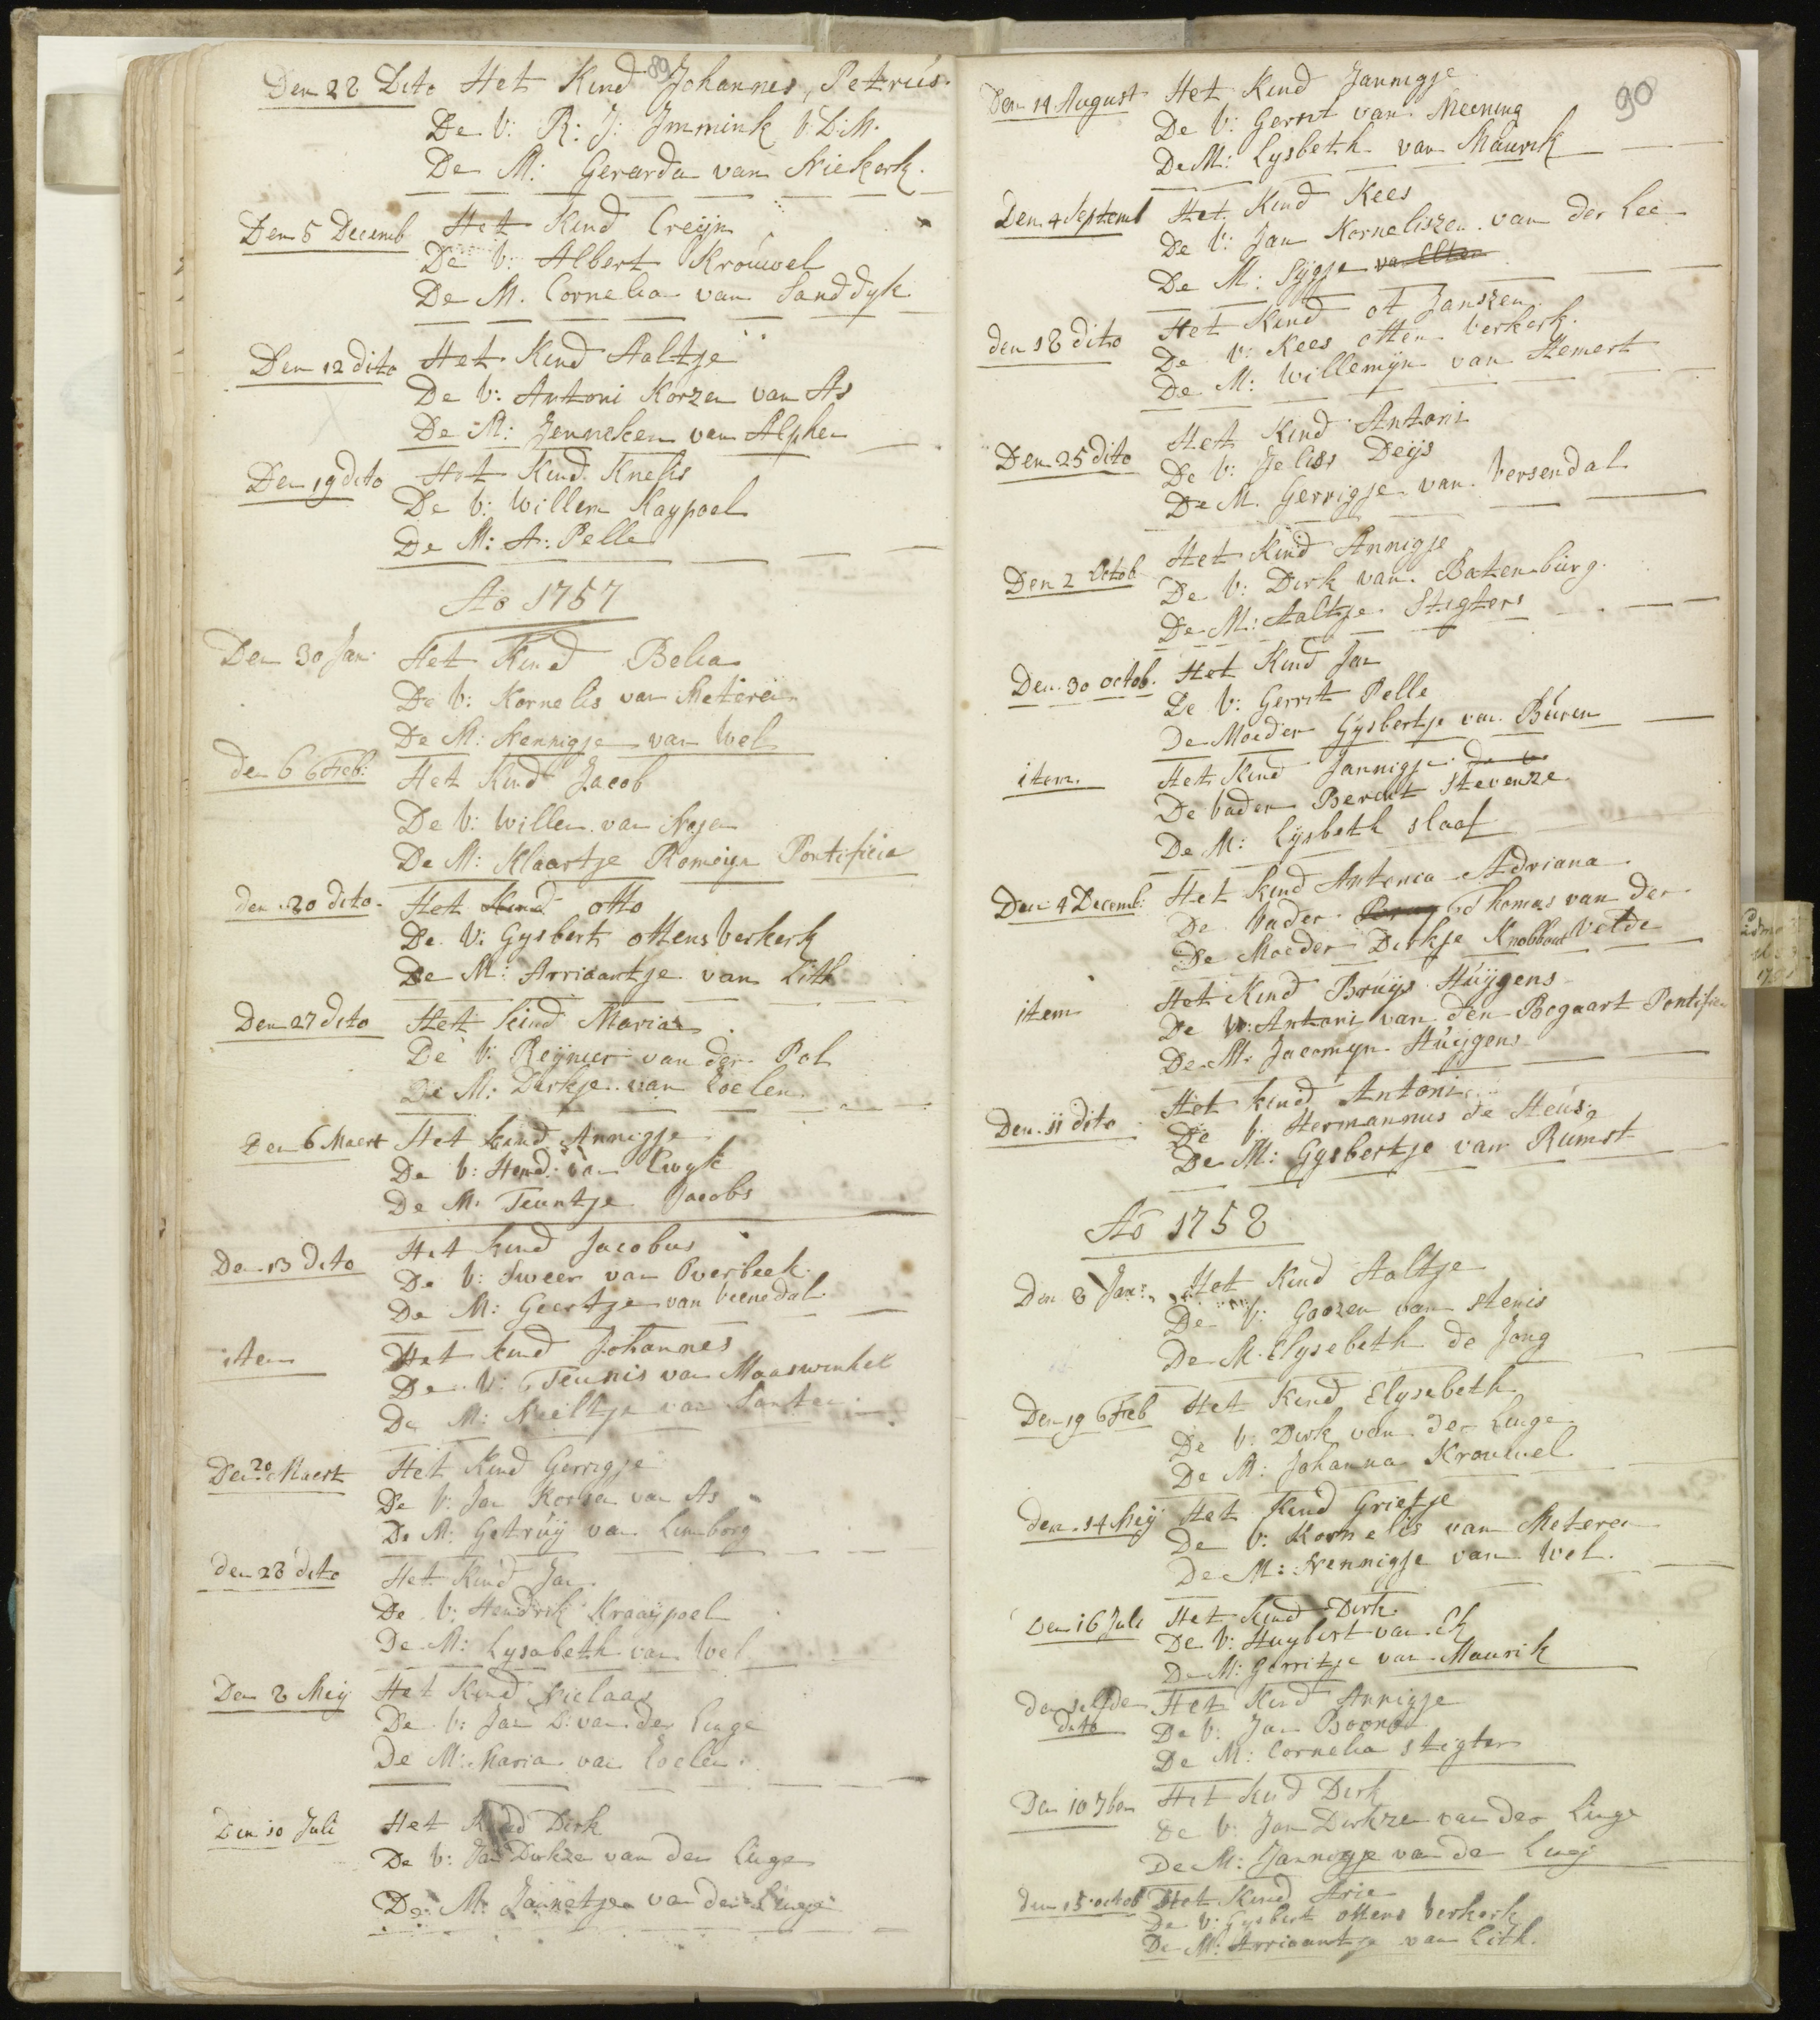 89
Den 28 Dito Het Kind Johannes, Petrús.
De V: R: J: Immink V.D.M.
De M: Gerarda van Niekerk.
Den 5 Decemb Het Kind Creijn
De V: Albert Kroúwel
De M. Cornelia van Sanddijk
Den 12 dito Het Kind Aaltje
De V: Antoni Korzen van As
De M: Jenneken van Alphen
Den 19 dito Het Kind Knelis
De V: Willem Kaypoel
De M: A: Pelle
Ao 1757
Den 30 Jan. Het Kind Belia
De V: Kornelis van Meteren
De M: Nennigje van Wel
den 6 Feb: Het Kind Jacob
De V: Willem van
De M: Klaartje Romeijn Pontificia
den 20 dito. Het Kind otto
De V: Gysbert ottens Verkerk
De M: Arriaantje van Lith
Den 27 dito Het Kind Maria
De V: Reijnier van der Pol
De M: Dirkje van Zoelen
Den 6 Maert Het kind Annigje
De V: Hend: van Ewyk
De M. Teuntje Jacobs
Den 13 dito Het kind Jacobus
De V: Sweer van Overbeek
De M: Geertje van Veenedal
item Het kind Johannes
De V: Teunis van Maaswinkel
De M: Neeltje van Santen
Den 20 Maert Het Kind Gerrigje
De V: Jan Korsen van As
De M: Getrúij van Limborg
den 28 dito Het Kind Jan
De V: Hendrik Kraaijpoel
De M: Lysabeth van Wel
Den 8 Meij Het Kind Niclaas
De V: Jan D: van der Linge
De M: Maria van Zoelen
Den 10 Juli Het Kind Dirk
De V: Jan Dirkze van der Linge
De M: Jannetje van der Linge
90
Den 14 August Het Kind Jannigje
De V: Gerrit van Meening
De M: Lysbeth van Maúrik
Den 4 Septemb Het Kind Kees
De V: Jan Korneliszen van der Lee
De M: Sijgje van Elten
den 18 dito Het Kind ot Janszen
De V: Kees otten Verkerk.
De M: Willemijn van Hemert
Den 25 dito Het Kind Antoni
De V: Jeliss Deijs
De M. Gerrigje van Versendal
Den 2 Octob Het Kind Annigje
De V: Dirk van Batenbúrg.
De M: Aaltje Stigters
Den 30 octob. Het Kind Jan
De V: Gerrit Pelle
De Moeder Gysbertje van Búren
item. Het Kind Jannigje de V.
De Vader Berent Stevenze
De M: Lijsbeth slaaf
Den 4 Decemb: Het kind Antonia Adriana
De Vader Thomas van der
De Moeder Dirkje Knobbout Velde
item Het Kind Brúijs Húijgens
De V: Antoni van den Bogaart Pontificia
De M: Jacomyn Húijgens
Den 11 dito Het kind Antoni
De V. Hermannus de Heús
De M: Gysbertje van Rúmst
Ao 1758
Den 8 Jan: Het Kind Aaltje
De V: Goozen van Stenis
De M. Elysebeth de Jong
Den 19 Feb Het Kind Elysebeth
De V: Dirk van der Linge
De M: Johanna Krouwel
den 14 Meij Het Kind Grietje
De V: Kornelis van Meteren
De M: Nennigje van Wel.
Den 16 Juli Het kind Dirk
De V: Huybert van Ek
De M: Gerritje van Maurik
den selfden dito Het Kind Annigje
De V: Jan Boone
De M: Cornelia Stigter
Den 10 7ber Het kind Dirk
De V: Jan Dirkze van der Linge
De M: Jannigje van de Ling
den 15 octob Het Kind Arie
De V: Gysbert ottens Verkerk
De M: Arriaantje van Lith.